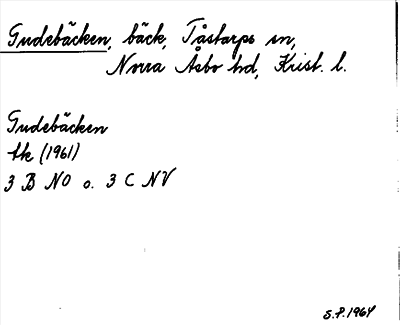 Gudebäcken, bäck, Tåstarps sn,
Norra Åsbo hd, Krist. l.
Gudebäcken
tk (1961)
3 B NO o. 3 C NV
S.P. 1964